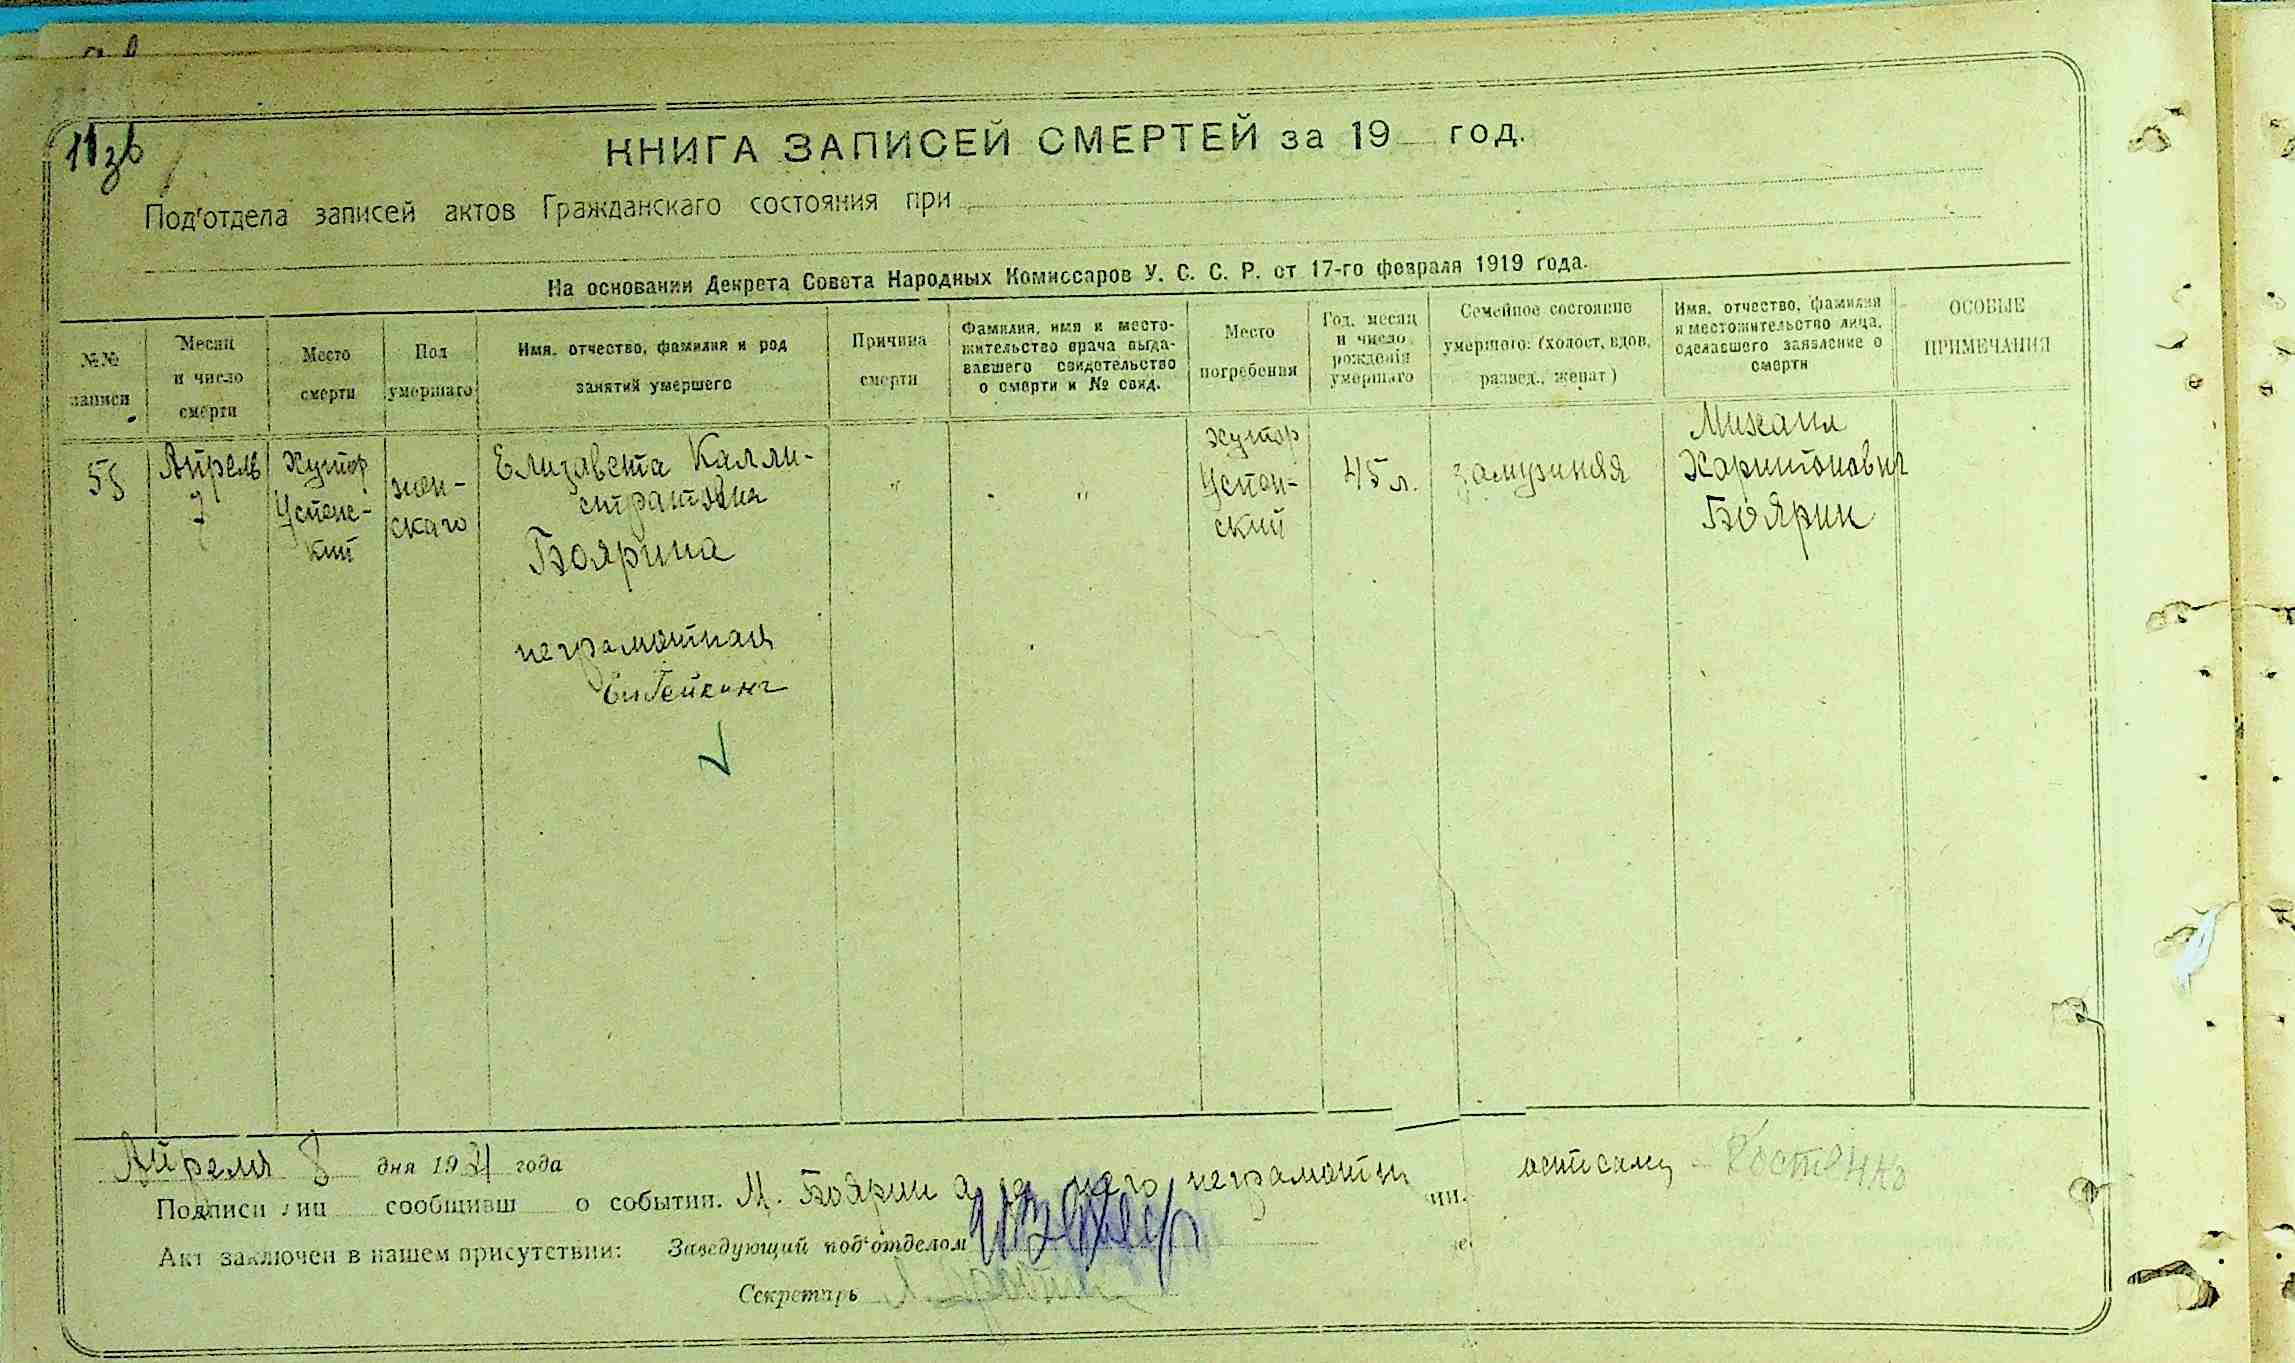 КНИГА ЗАПИСЕЙ СМЕРТЕЙ за 19 год.
Под'отдела записей актов Гражданскаго состояния при
На основании Декрета Совета Народных Комиссаров У. С. С. Р. от 17-го февраля 1919 года.
№№ записи
Месяц и число смерти
Место смерти
Пол умершаго
Имя, отчество, фамилия и род занятий умершего
Причина смерти
Фамилия, имя и место-
жительство врача выда-
вавшего свидетельство
о смерти и № свид.
Место погребения
Год, месяц
и число
рождения
умершаго
Семейное состояние
умершого: (холост, вдов,
развед., женат)
Имя, отчество, фамилия
и местожительство лица,
сделавшего заявление о
смерти
ОСОБЫЕ
ПРИМЕЧАНИЯ
58
Апрель
7
Хутор
Успенс-
кий
жен-
скаго
Елизавета Калли-
стратовна
Боярина
неграмотная
"
"
хутор
Успен-
ский
45 л.
замужняя
Михаил
Харитонович
Боярин
Апреля 8 дня 1921 года
Подписи лиц сообщивш о событии. М. Боярин а за него неграмотн Костенко
Акт заключен в нашем присутствии: Заведующий под'отделом
Секретарь